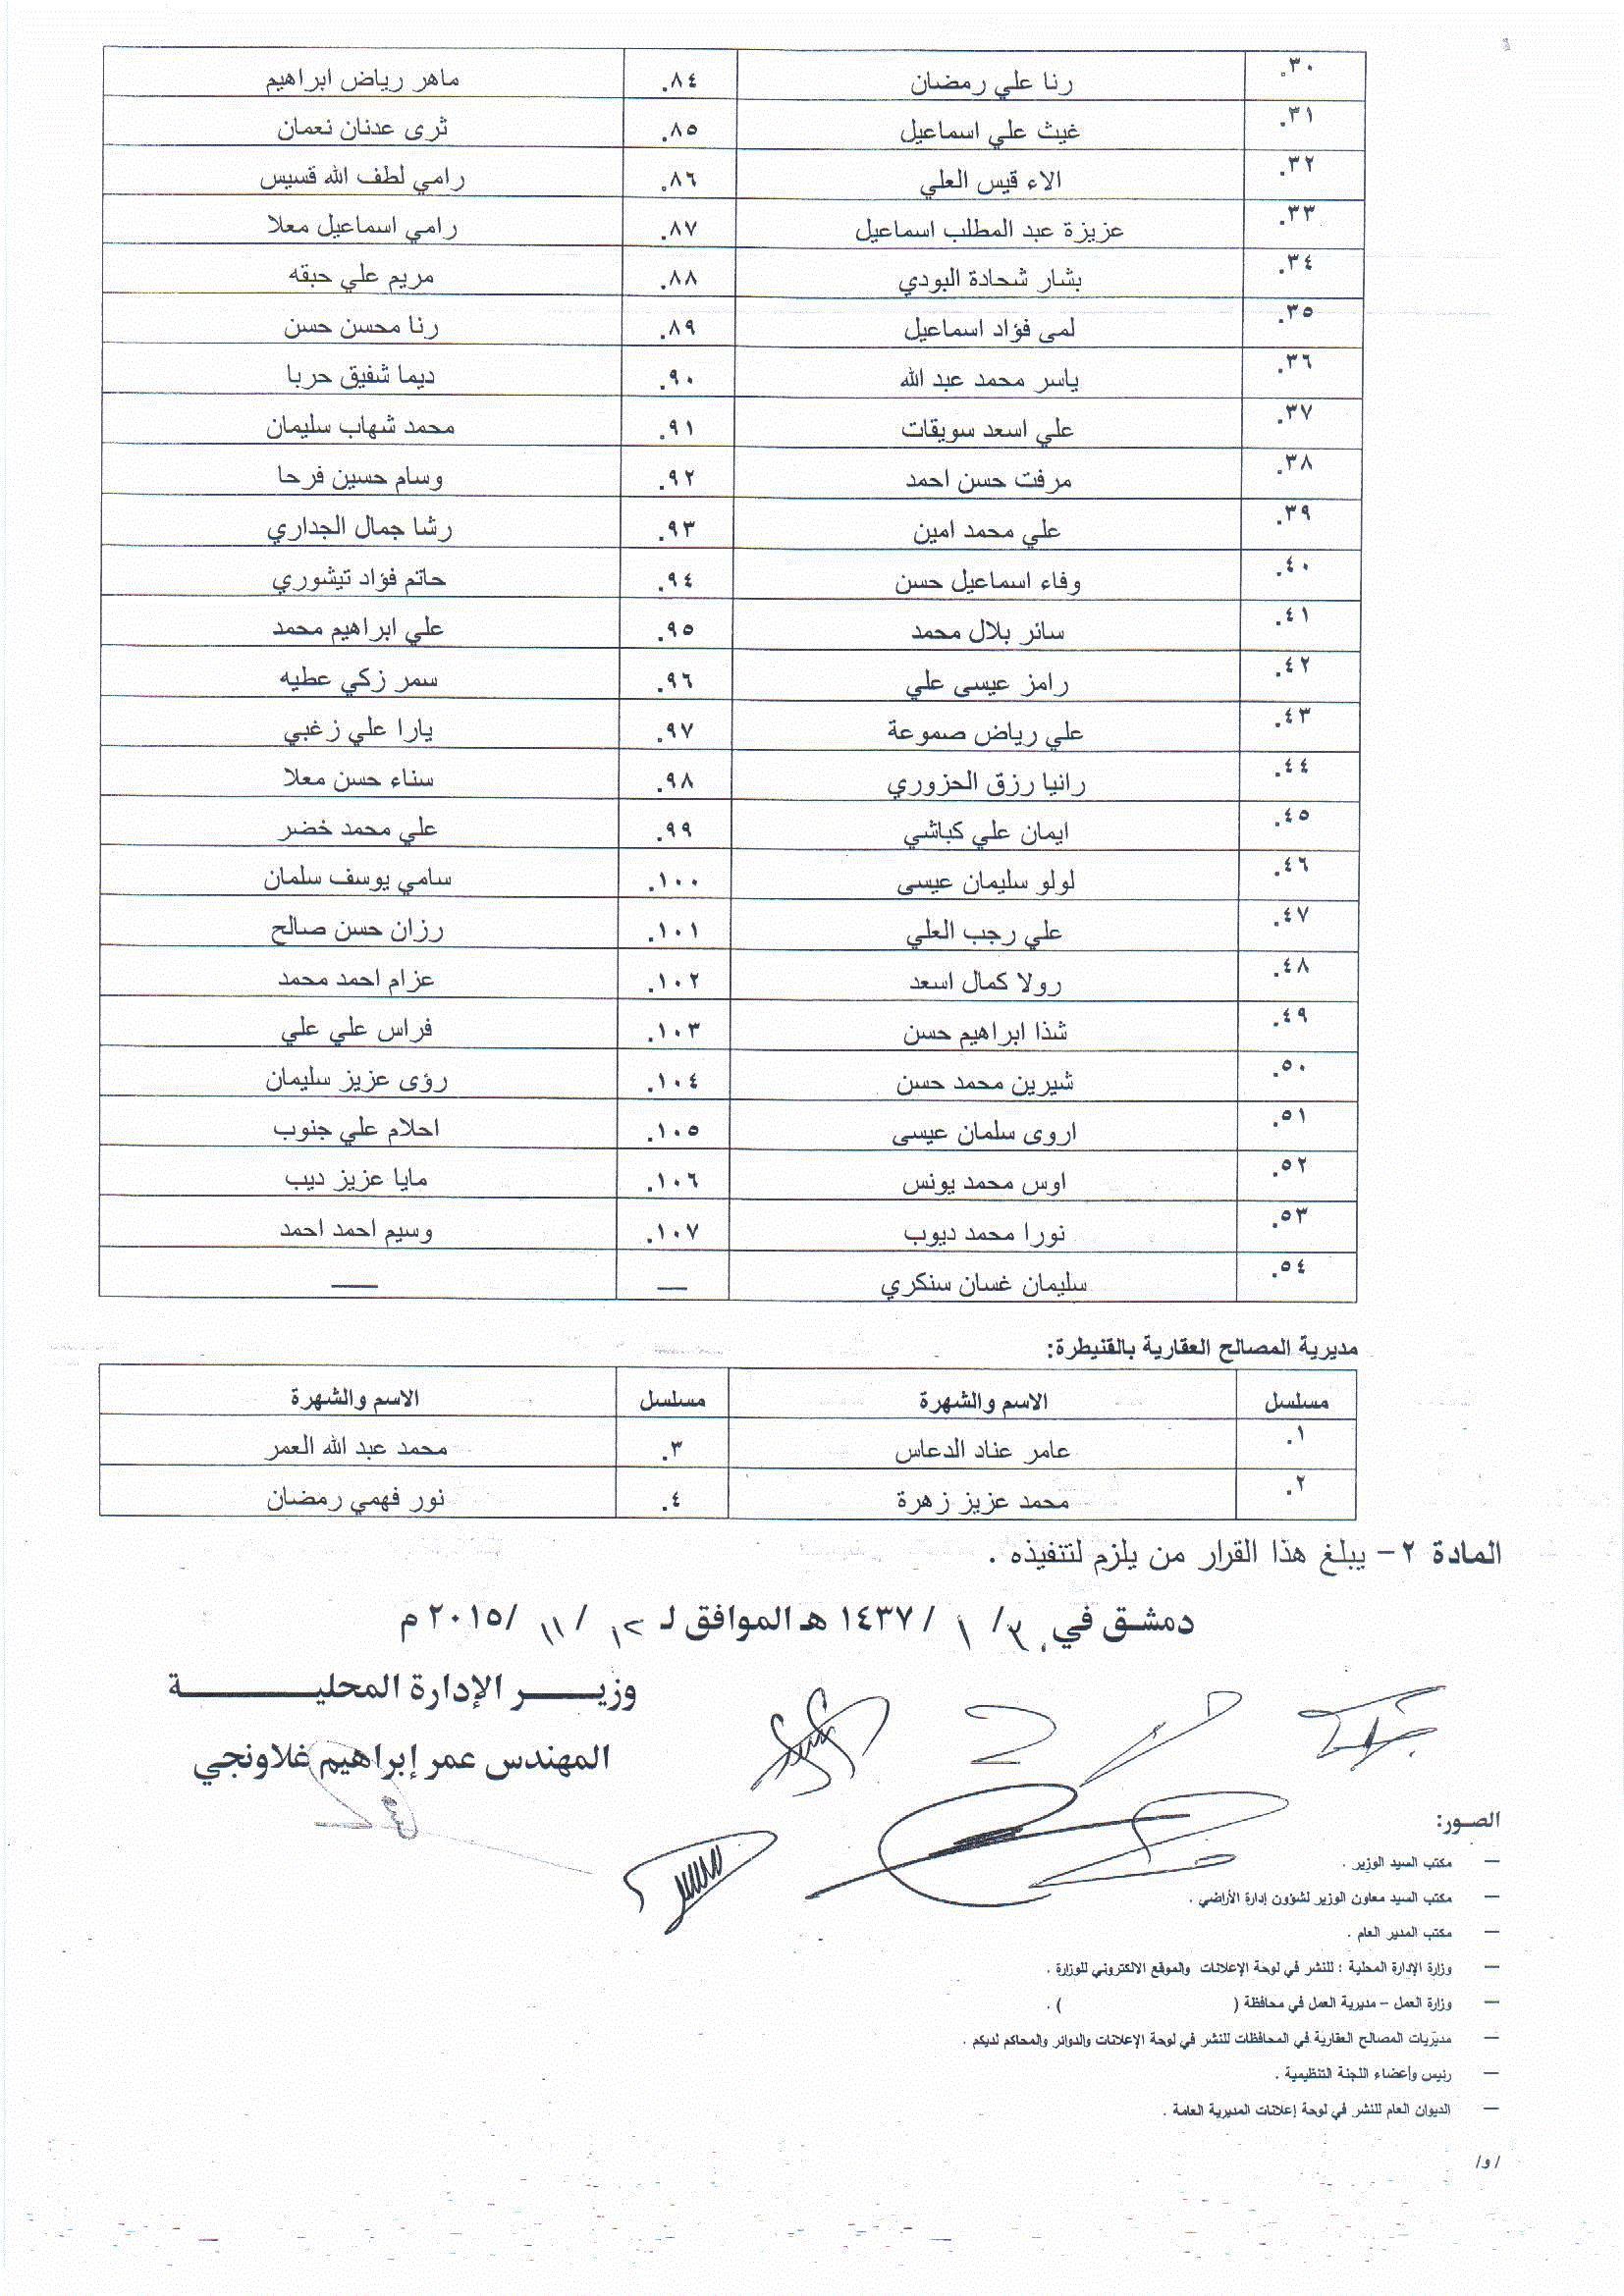 ٣٠. رنا علي رمضان ٨٤. ماهر رياض ابراهيم
٣١. غيث علي اسماعيل ٨٥. ثرى عدنان نعمان
٣٢. الاء قيس العلي ٨٦. رامي لطف الله قسيس
٣٣. عزيزة عبد المطلب اسماعيل ٨٧. رامي اسماعيل معلا
٣٤. بشار شحادة البودي ٨٨. مريم علي حبقه
٣٥. لمى فؤاد اسماعيل ٨٩. رنا محسن حسن
٣٦. ياسر محمد عبد الله ٩٠. ديما شفيق حربا
٣٧. علي اسعد سويقات ٩١. محمد شهاب سليمان
٣٨. مرفت حسن احمد ٩٢. وسام حسين فرحا
٣٩. علي محمد امين ٩٣. رشا جمال الجداري
٤٠. وفاء اسماعيل حسن ٩٤. حاتم فؤاد تيشوري
٤١. سائر بلال محمد ٩٥. علي ابراهيم محمد
٤٢. رامز عيسى علي ٩٦. سمر زكي عطيه
٤٣. علي رياض صموعة ٩٧. يارا علي زغبي
٤٤. رانيا رزق الحزوري ٩٨. سناء حسن معلا
٤٥. ايمان علي كباشي ٩٩. علي محمد خضر
٤٦. لولو سليمان عيسى ١٠٠. سامي يوسف سلمان
٤٧. علي رجب العلي ١٠١. رزان حسن صالح
٤٨. رولا كمال اسعد ١٠٢. عزام احمد محمد
٤٩. شذا ابراهيم حسن ١٠٣. فراس علي علي
٥٠. شيرين محمد حسن ١٠٤. رؤى عزيز سليمان
٥١. اروى سلمان عيسى ١٠٥. احلام علي جنوب
٥٢. اوس محمد يونس ١٠٦. مايا عزيز ديب
٥٣. نورا محمد ديوب ١٠٧. وسيم احمد احمد
٥٤. سليمان غسان سنكري — —
مديرية المصالح العقارية بالقنيطرة:
مسلسل الاسم والشهرة مسلسل الاسم والشهرة
١. عامر عناد الدعاس ٣. محمد عبد الله العمر
٢. محمد عزيز زهرة ٤. نور فهمي رمضان
المادة ٢- يبلغ هذا القرار من يلزم لتنفيذه .
دمشق في ٣٠/ ١ /١٤٣٧ هـ الموافق لـ ١٢ / ١١ /٢٠١٥ م
وزيـــــر الإدارة المحليـــــــــــة
المهندس عمر إبراهيم غلاونجي
الصـور:
– مكتب السيد الوزير .
– مكتب السيد معاون الوزير لشؤون إدارة الأراضي .
– مكتب المدير العام .
– وزارة الإدارة المحلية : للنشر في لوحة الإعلانات والموقع الالكتروني للوزارة .
– وزارة العمل – مديرية العمل في محافظة ( ) .
– مديريات المصالح العقارية في المحافظات للنشر في لوحة الإعلانات والدوائر والمحاكم لديكم .
– رئيس وأعضاء اللجنة التنظيمية .
– الديوان العام للنشر في لوحة إعلانات المديرية العامة .
/و/